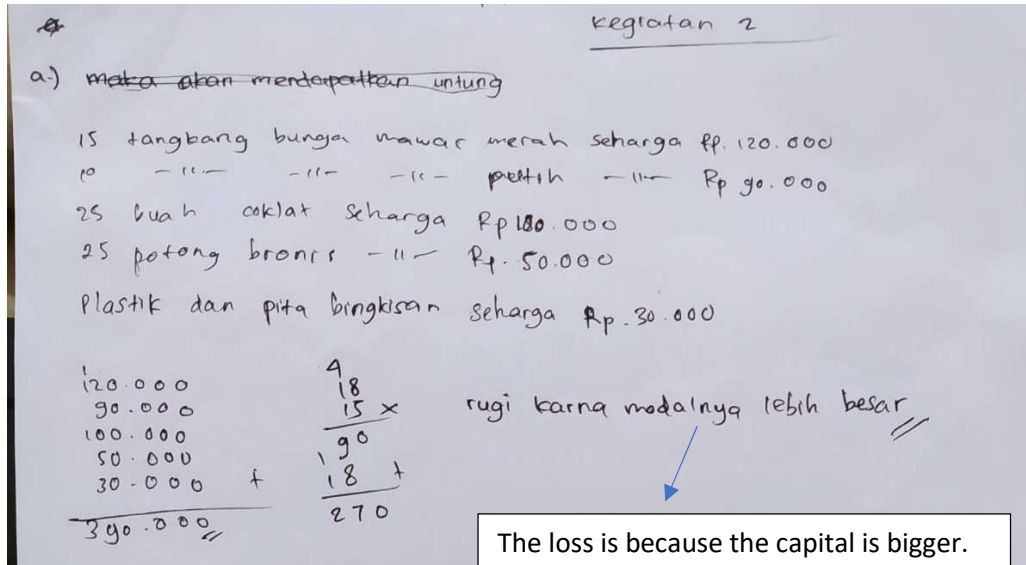 Kegiatan 2
a.) maka akan mendapatkan untung
15 tangbang bunga mawar merah seharga Rp. 120.000
10 -"- -"- -"- putih -"- Rp 90.000
25 buah coklat seharga Rp 100.000
25 potong bronis -"- Rp. 50.000
Plastik dan pita bingkisan seharga Rp. 30.000
1
120.000
90.000
100.000
50.000
30.000 +
390.000
4
18
15 x
90
1
18 +
270
rugi karna modalnya lebih besar
The loss is because the capital is bigger.